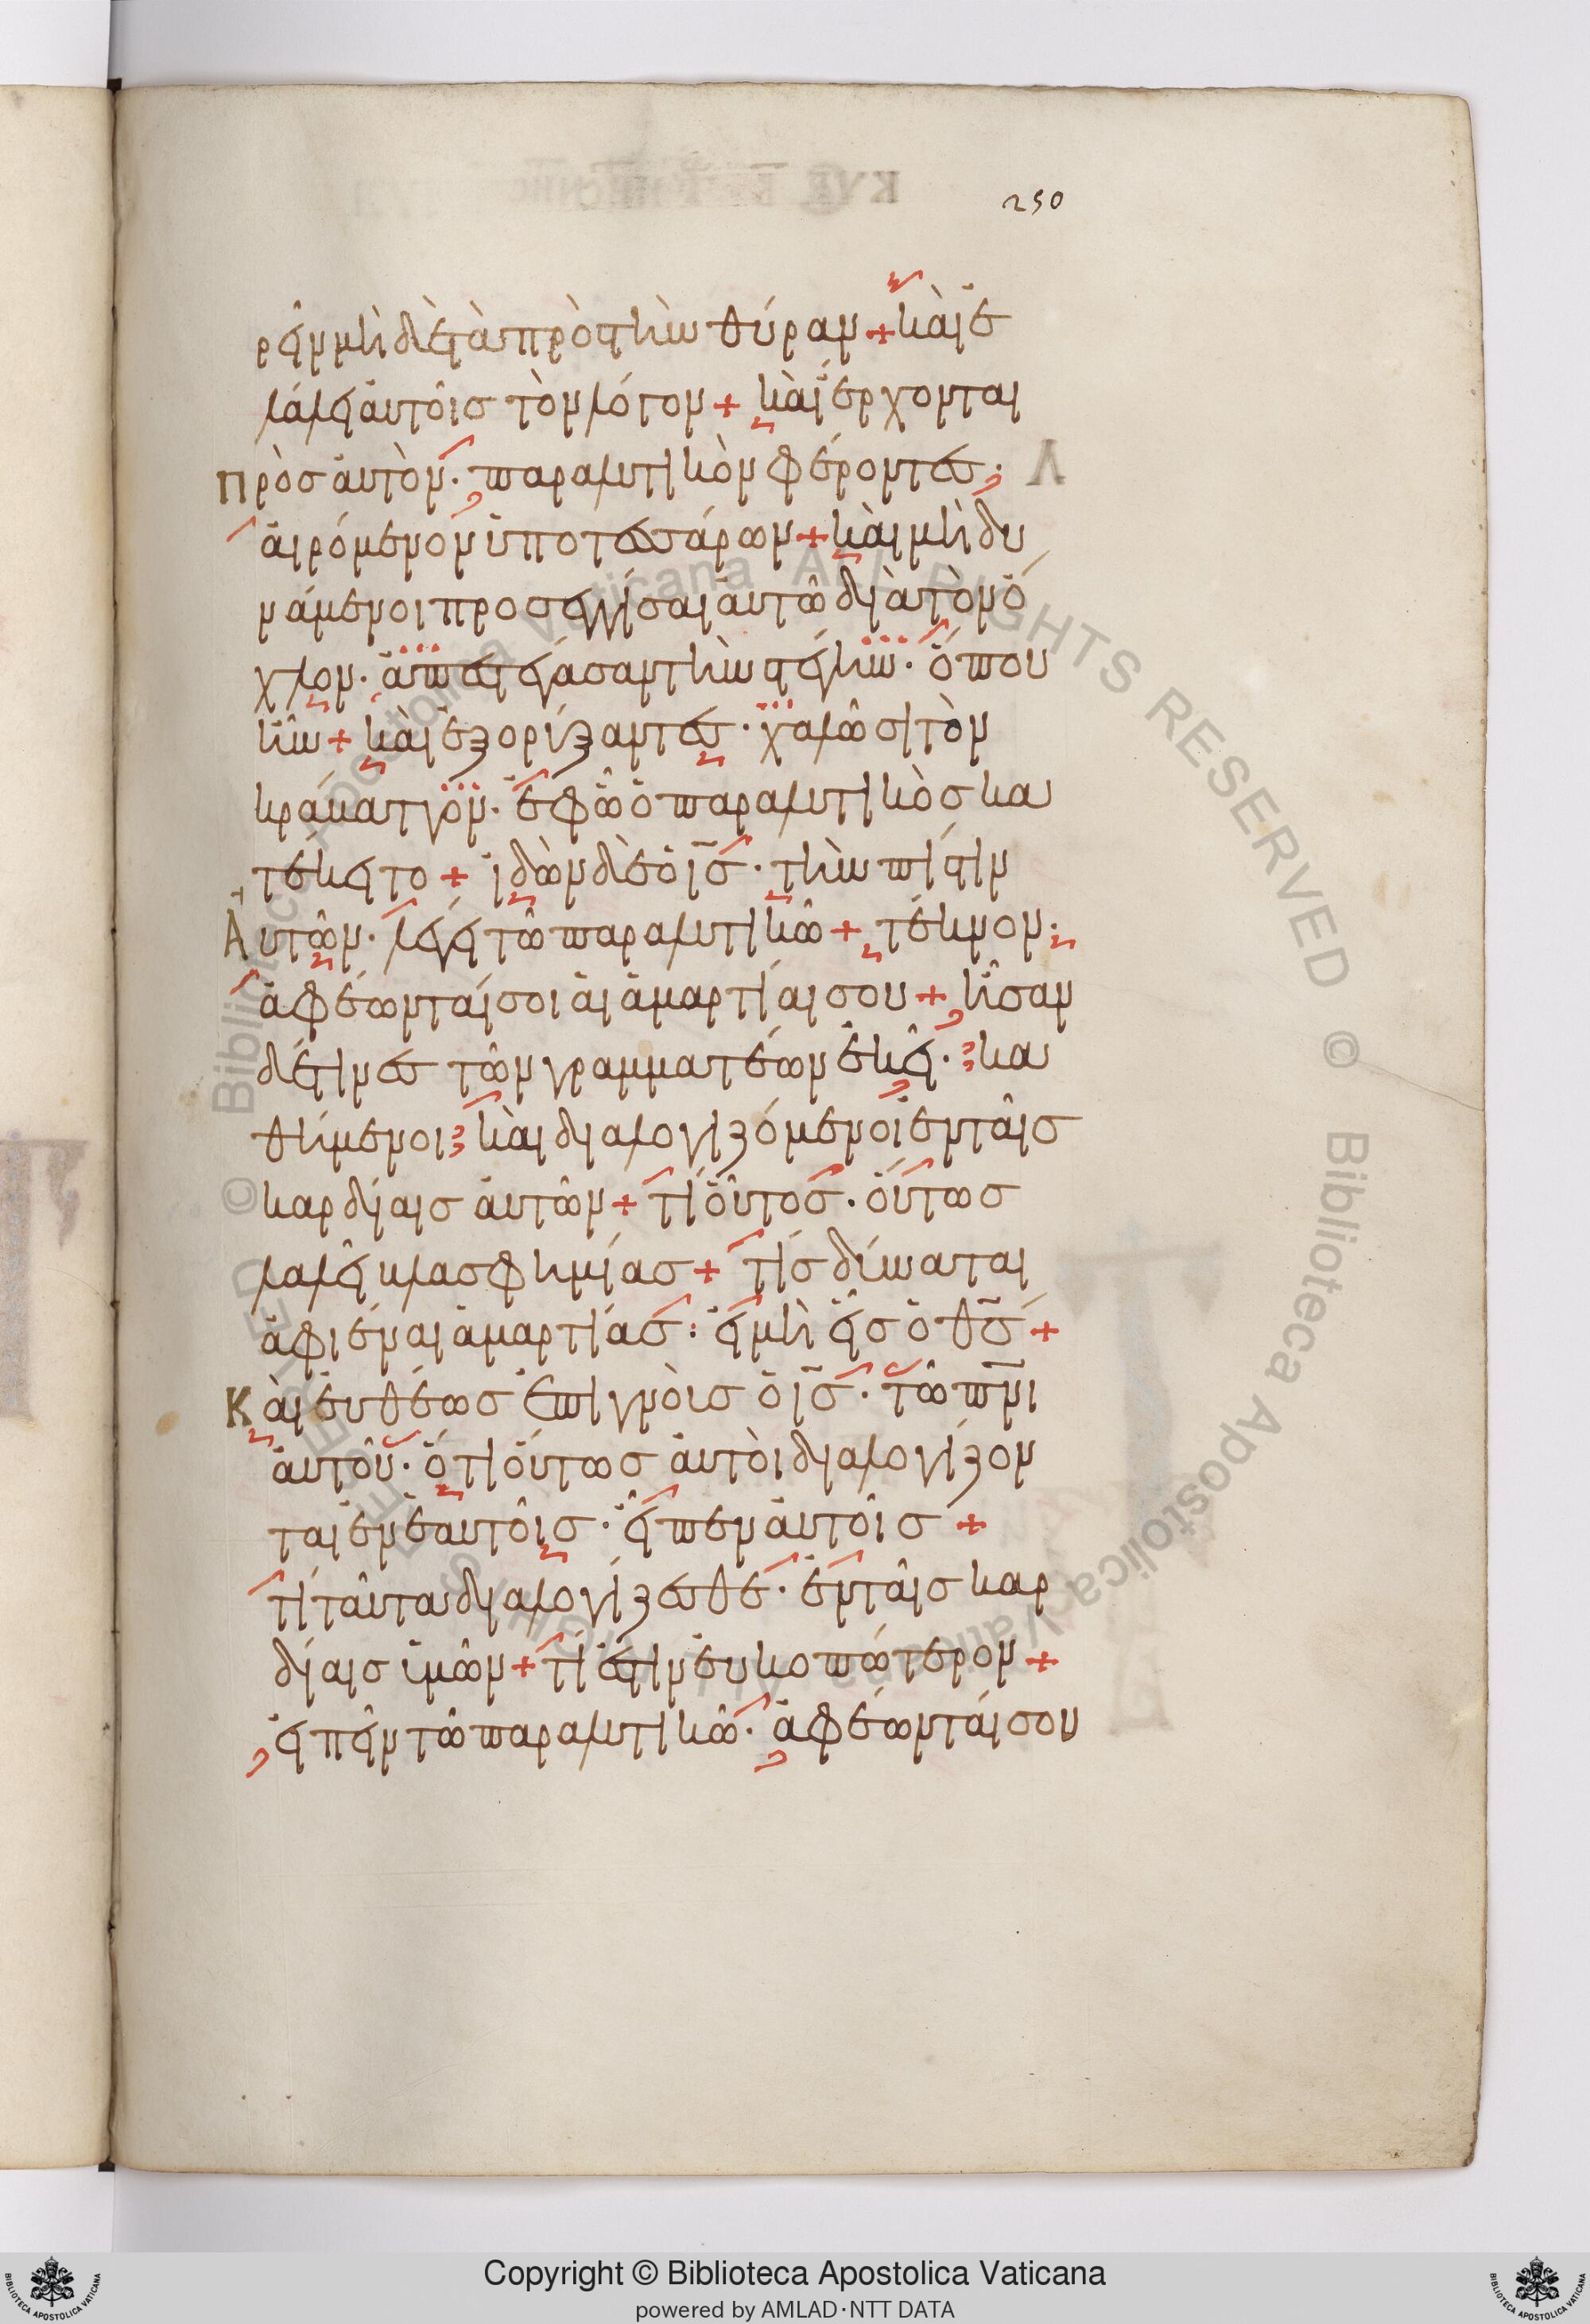 250
ρεῖν μὴ δὲ τὰ πρὸς τὴν θύραν + καὶ ἐ
λάλει αὐτοῖς τὸν λόγον + καὶ ἔρχονται
Πρὸς αὐτὸν · παραλυτικὸν φέροντες ·
αἰρόμενον ὑπὸ τεσσάρων + καὶ μὴ δυ
νάμενοι προσεγγίσαι αὐτῶ διὰ τὸν ὄ
χλον · ἀπεστέγασαν τὴν στέγην · ὅπου
ἦν + καὶ ἐξορύξαντες · χαλῶσι τὸν
κράβαττον · ἐφ ὧ ὁ παραλυτικὸς κα
τέκειτο + ἰδὼν δὲ ὁ ις · τὴν πίστιν
Αὐτῶν · λέγει τῶ παραλυτικῶ + τέκνον ·
ἀφέωνταί σοι αἱ ἁμαρτίαι σου + ἦσαν
δέ τινες τῶν γραμματέων ἐκεῖ · κα
θήμενοι καὶ διαλογιζόμενοι ἐν ταῖς
καρδίαις αὐτῶν + τί οὗτος · οὕτως
λαλεῖ βλασφημίας + τίς δύναται
ἀφιέναι ἁμαρτίας : εἰ μὴ εἷς ὁ θς +
Καὶ εὐθέως ἐπιγνοὺς ὁ ις · τῶ πνι
αὐτοῦ · ὅτι οὕτως αὐτοὶ διαλογίζον
ται ἐν ἑαυτοῖς · εἶπεν αὐτοῖς +
τί ταῦτα διαλογίζεσθε · ἐν ταῖς καρ
δίαις ὑμῶν + τί ἐστιν εὐκοπώτερον +
εἰπεῖν τῶ παραλυτικῶ · ἀφέωνταί σου
Copyright © Biblioteca Apostolica Vaticana
powered by AMLAD·NTT DATA